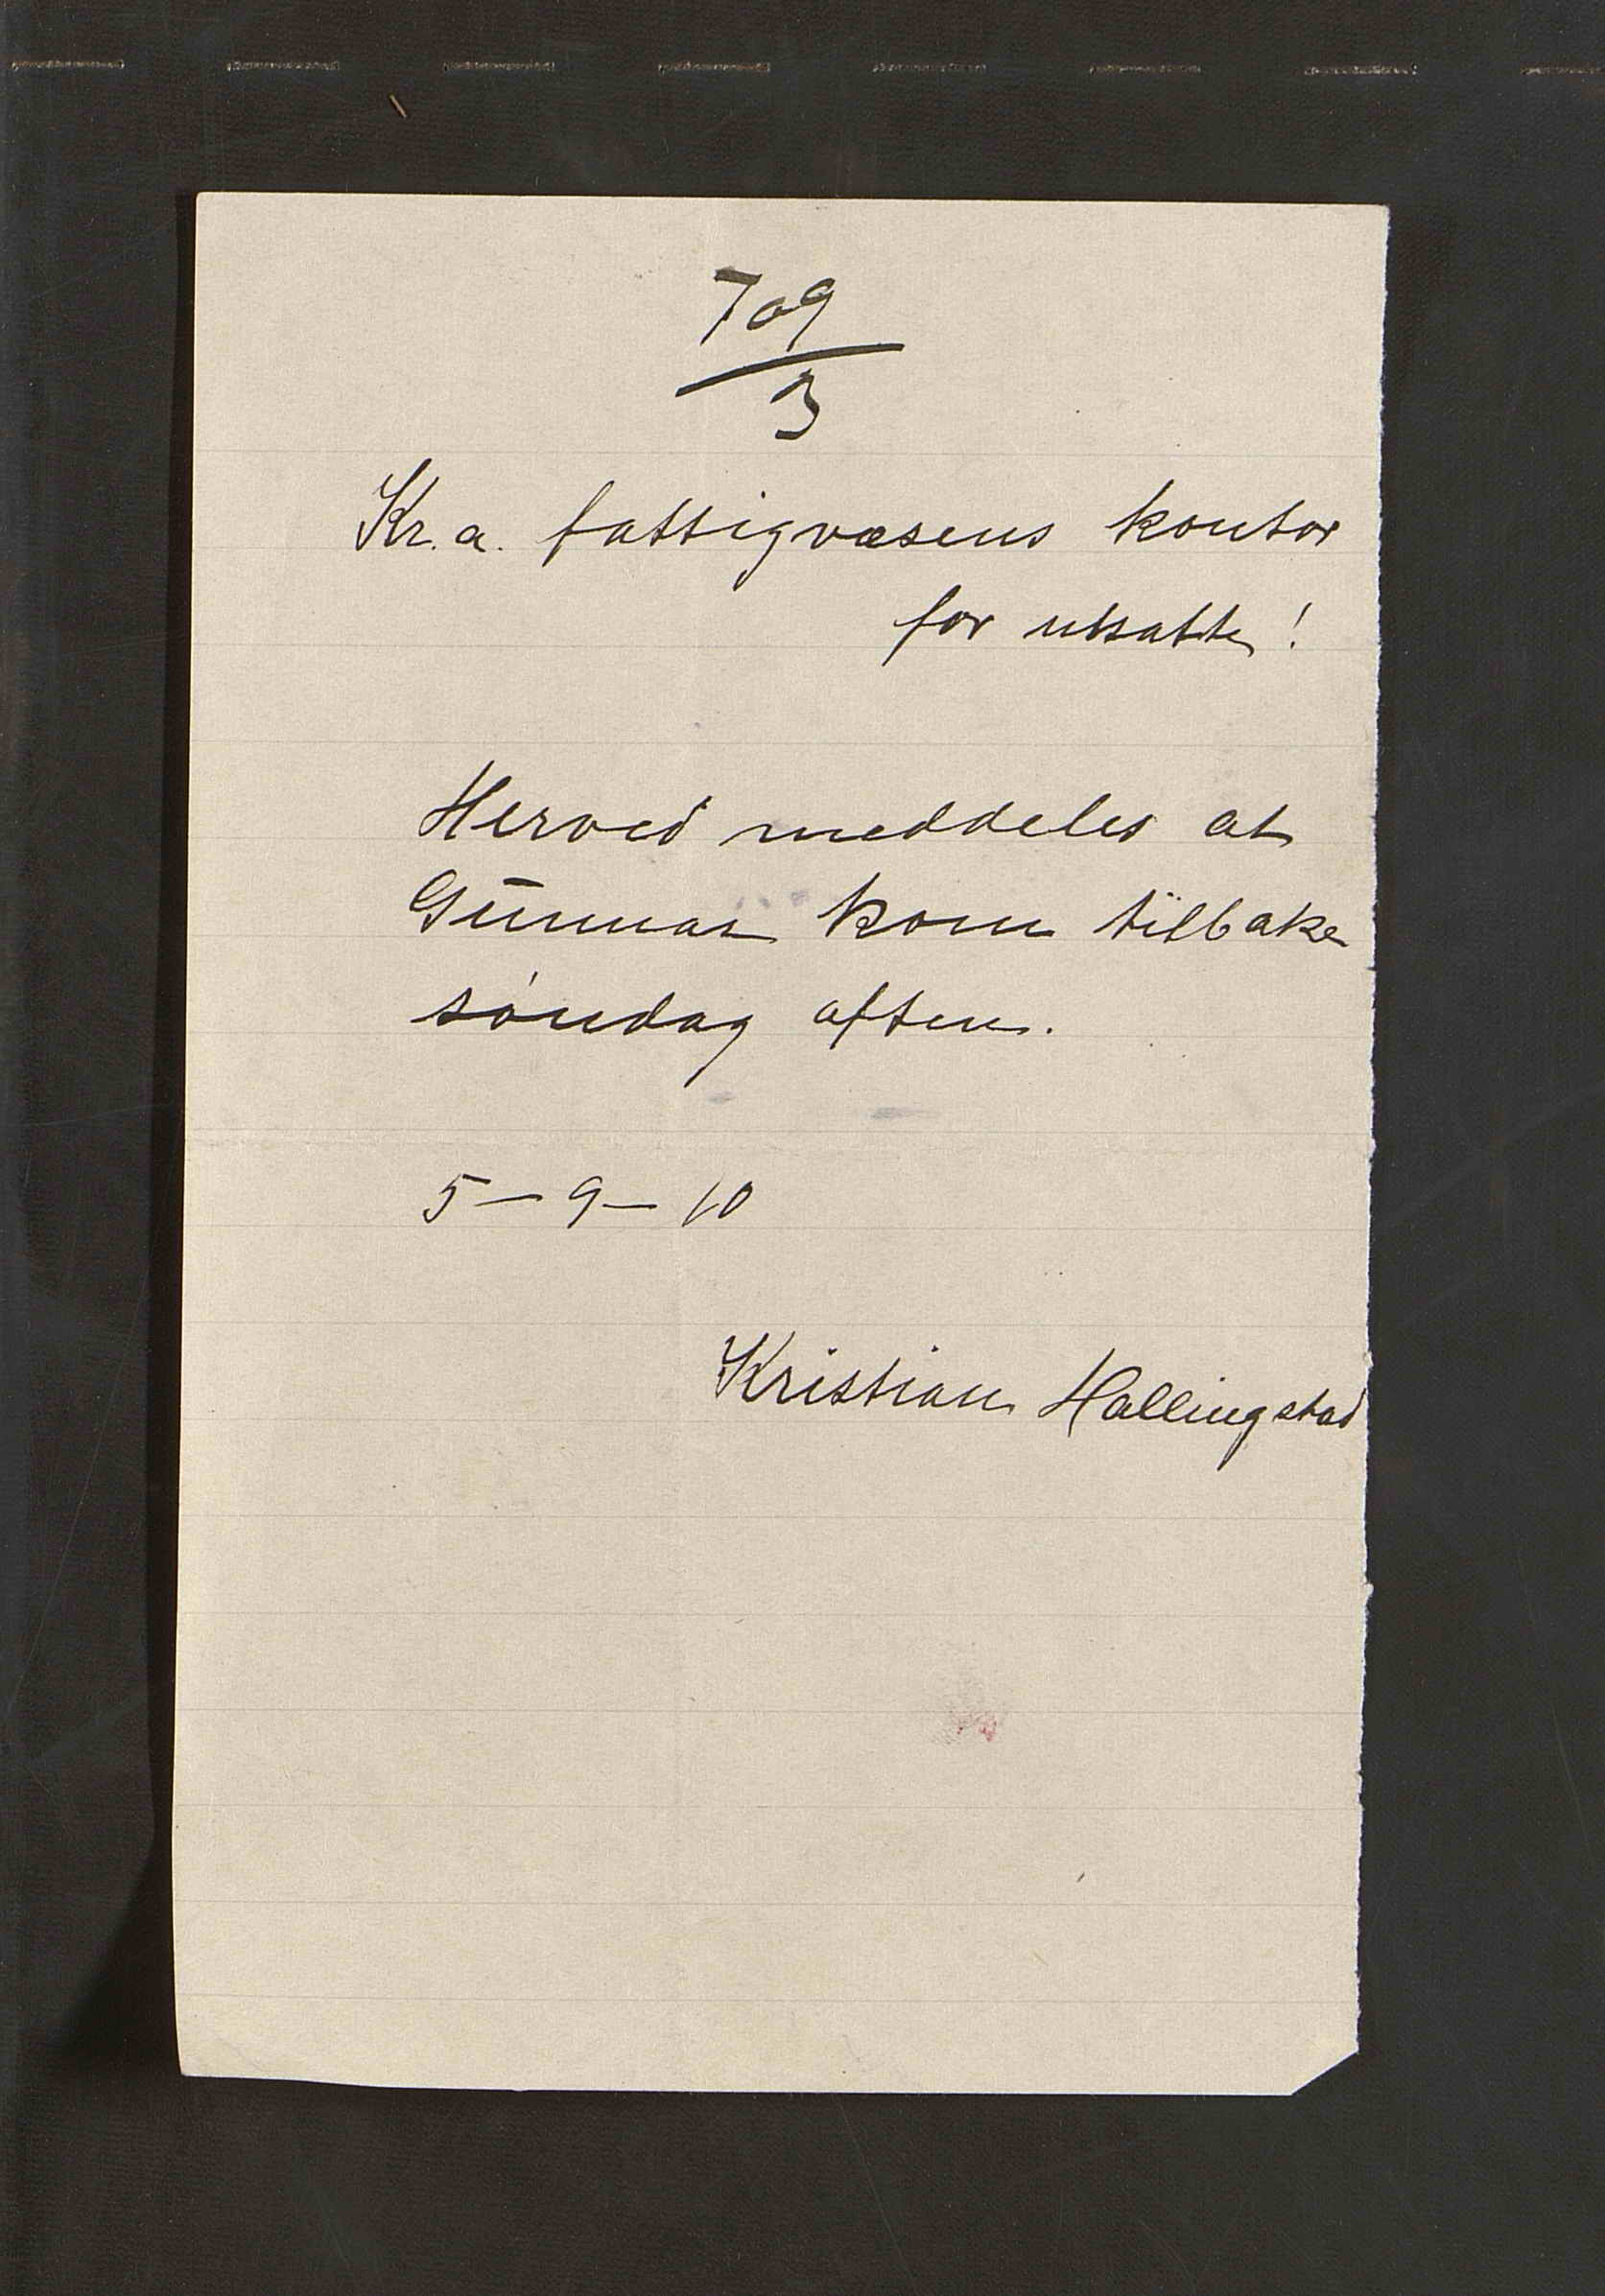 709
3
Kr. a. fattigvæsens kontor
for utsatte!
Herved meddeles at
Gunnar kom tilbake
søndag aften.
5-9-10
Kristian Hallingstad